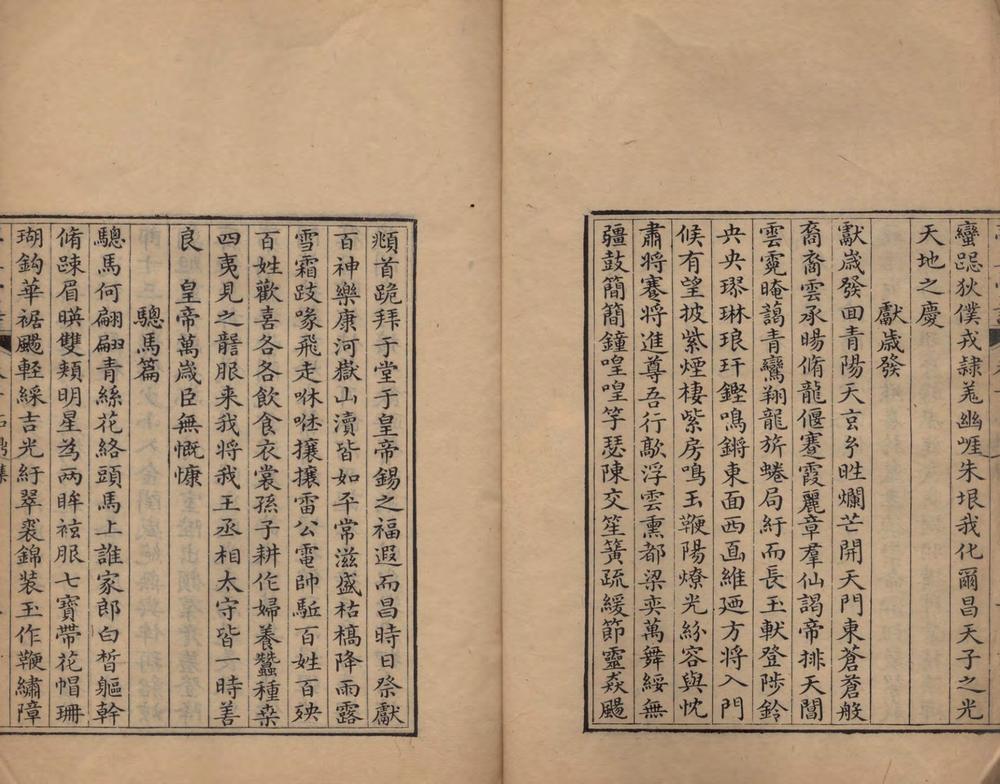 蠻跽狄僕戎隸羗幽崕朱垠我化爾昌天子之光
天地之慶
獻歲發
獻歲發囬青陽天宫兮甡爛芒開天門東蒼蒼般
裔裔雲承暘脩龍偃蹇霞麗章羣仙謁帝排天閶
雲霓晻藹青鸞翔龍旂蜷局紆而長玉軑登陟鈴
央央璆琳琅玕鏗鳴鏘東面西面維廼方將入門
候有望披紫煙棲紫房鳴玉鞭陽燎光紛容與忱
肅將騫將進尊吾行歊浮雲熏都梁奕萬舞綏無
疆鼓簡簡鐘喤喤竽瑟陳交笙簧疏緩節靈猋颺
頫首跪拜于堂于皇帝錫之福遐而昌時日祭獻
百神樂康河嶽山瀆皆如平常滋盛枯槁降雨露
雪霜跂喙飛走咻咻攘攘雷公電帥駈百姓百殃
百姓歡喜各各飲食衣裳孫子耕作婦養蠶種桑
四夷見之讋服来我將我王丞相太守皆一時善
良 皇帝萬歲臣無慨慷
驄馬篇
驄馬何翩翩青絲花絡頭馬上誰家郎白皙軀幹
脩踈眉暎雙頬明星為兩眸袨服七寶帶花帽珊
瑚鈎華裾颺軽綵吉光紆翠裘錦装玉作鞭繡障